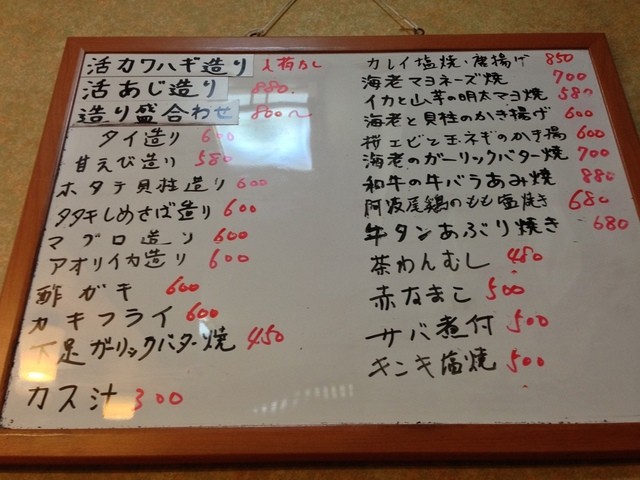 活カワハギ造り 入荷なし
活あじ造り 880.
造り盛合わせ 800〜
タイ造り 600
甘えび造り 580
ホタテ貝柱造り 600
タタキしめさば造り 600
マグロ造り 600
アオリイカ造り 600
酢ガキ 600
カキフライ 600
下足ガーリックバター焼 450
カス汁 300
カレイ塩焼・唐揚げ 850
海老マヨネーズ焼 700
イカと山芋の明太マヨ焼 580
海老と貝柱のかき揚げ 600
桜エビと玉ネギのかき揚 600
海老のガーリックバター焼 700
和牛の牛バラあみ焼 880
阿波尾鶏のもも塩焼き 680
牛タンあぶり焼き 680
茶わんむし 480
赤なまこ 500
サバ煮付 500
キンキ塩焼 500